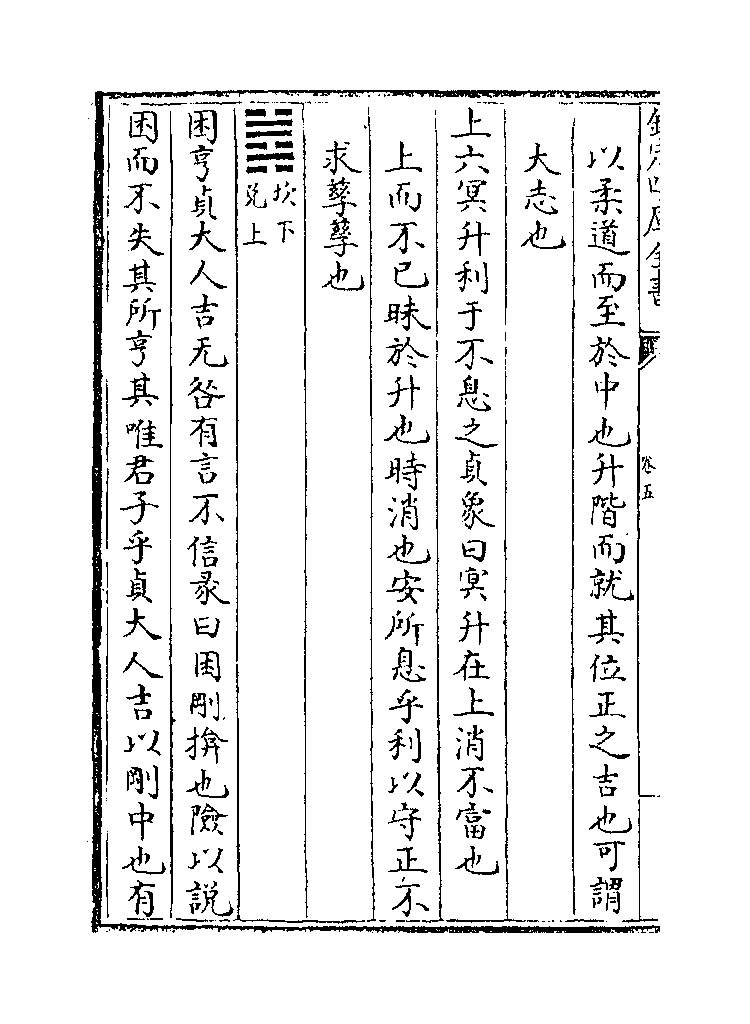 欽定四庫全書
卷五
以柔道而至於中也升階而就其位正之吉也可謂
大志也
上六冥升利于不息之貞象曰冥升在上消不富也
上而不已昧於升也時消也安所息乎利以守正不
求孳孳也
䷮坎下
兌上
困亨貞大人吉无咎有言不信彖曰困剛揜也險以說
困而不失其所亨其唯君子乎貞大人吉以剛中也有